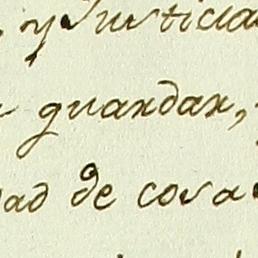 y Justicia
guardar,
ad de cosa